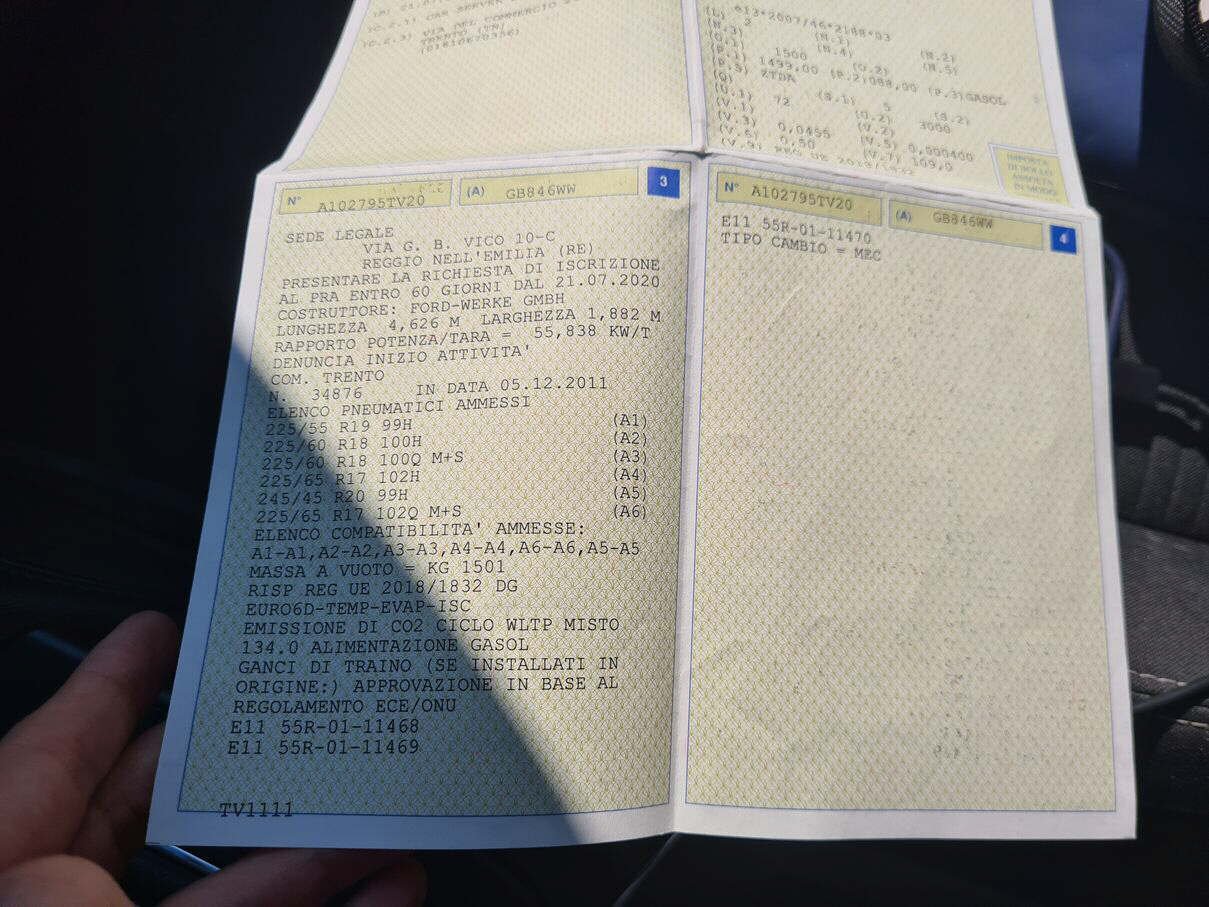 (C.2.3) VIA DEL COMMERCIO
TRENTO (TN)
(01810670356)
(L) 2
(N.3) (N.1) (N.2)
(O.1) (N.4) (N.5)
(P.1) 1500 (O.2)
(P.5) 1499,00 (P.2)088,00 (P.3)GASOL
(Q) ZTDA
(U.1) 72 (S.1) 5 (S.2)
(V.1) (U.2) 3000
(V.3) 0,0455 (V.2)
(V.6) 0,50 (V.5) 0,000400
(V.9) (V.7) 109,0
IMPOSTA
DI BOLLO
ASSOLTA
IN MODO
N° A102795TV20 (A) GB846WW 3
SEDE LEGALE
VIA G. B. VICO 10-C
REGGIO NELL'EMILIA (RE)
PRESENTARE LA RICHIESTA DI ISCRIZIONE
AL PRA ENTRO 60 GIORNI DAL 21.07.2020
COSTRUTTORE: FORD-WERKE GMBH
LUNGHEZZA 4,626 M LARGHEZZA 1,882 M
RAPPORTO POTENZA/TARA = 55,838 KW/T
DENUNCIA INIZIO ATTIVITA'
COM. TRENTO
N. 34876 IN DATA 05.12.2011
ELENCO PNEUMATICI AMMESSI
225/55 R19 99H (A1)
225/60 R18 100H (A2)
225/60 R18 100Q M+S (A3)
225/65 R17 102H (A4)
245/45 R20 99H (A5)
225/65 R17 102Q M+S (A6)
ELENCO COMPATIBILITA' AMMESSE:
A1-A1,A2-A2,A3-A3,A4-A4,A6-A6,A5-A5
MASSA A VUOTO = KG 1501
RISP REG UE 2018/1832 DG
EURO6D-TEMP-EVAP-ISC
EMISSIONE DI CO2 CICLO WLTP MISTO
134.0 ALIMENTAZIONE GASOL
GANCI DI TRAINO (SE INSTALLATI IN
ORIGINE:) APPROVAZIONE IN BASE AL
REGOLAMENTO ECE/ONU
E11 55R-01-11468
E11 55R-01-11469
TV1111
N° A102795TV20 (A) GB846WW 4
E11 55R-01-11470
TIPO CAMBIO = MEC